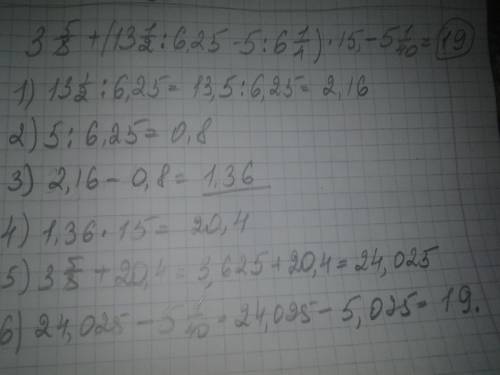 3 5/8 + (13 1/2 : 6,25 - 5 : 6 1/4) · 15, - 5 1/40 = 19
1) 13 1/2 : 6,25 = 13,5 : 6,25 = 2,16
2) 5 : 6,25 = 0,8
3) 2,16 - 0,8 = 1,36
4) 1,36 · 15 = 20,4
5) 3 5/8 + 20,4 = 3,625 + 20,4 = 24,025
6) 24,025 - 5 1/40 = 24,025 - 5,025 = 19.